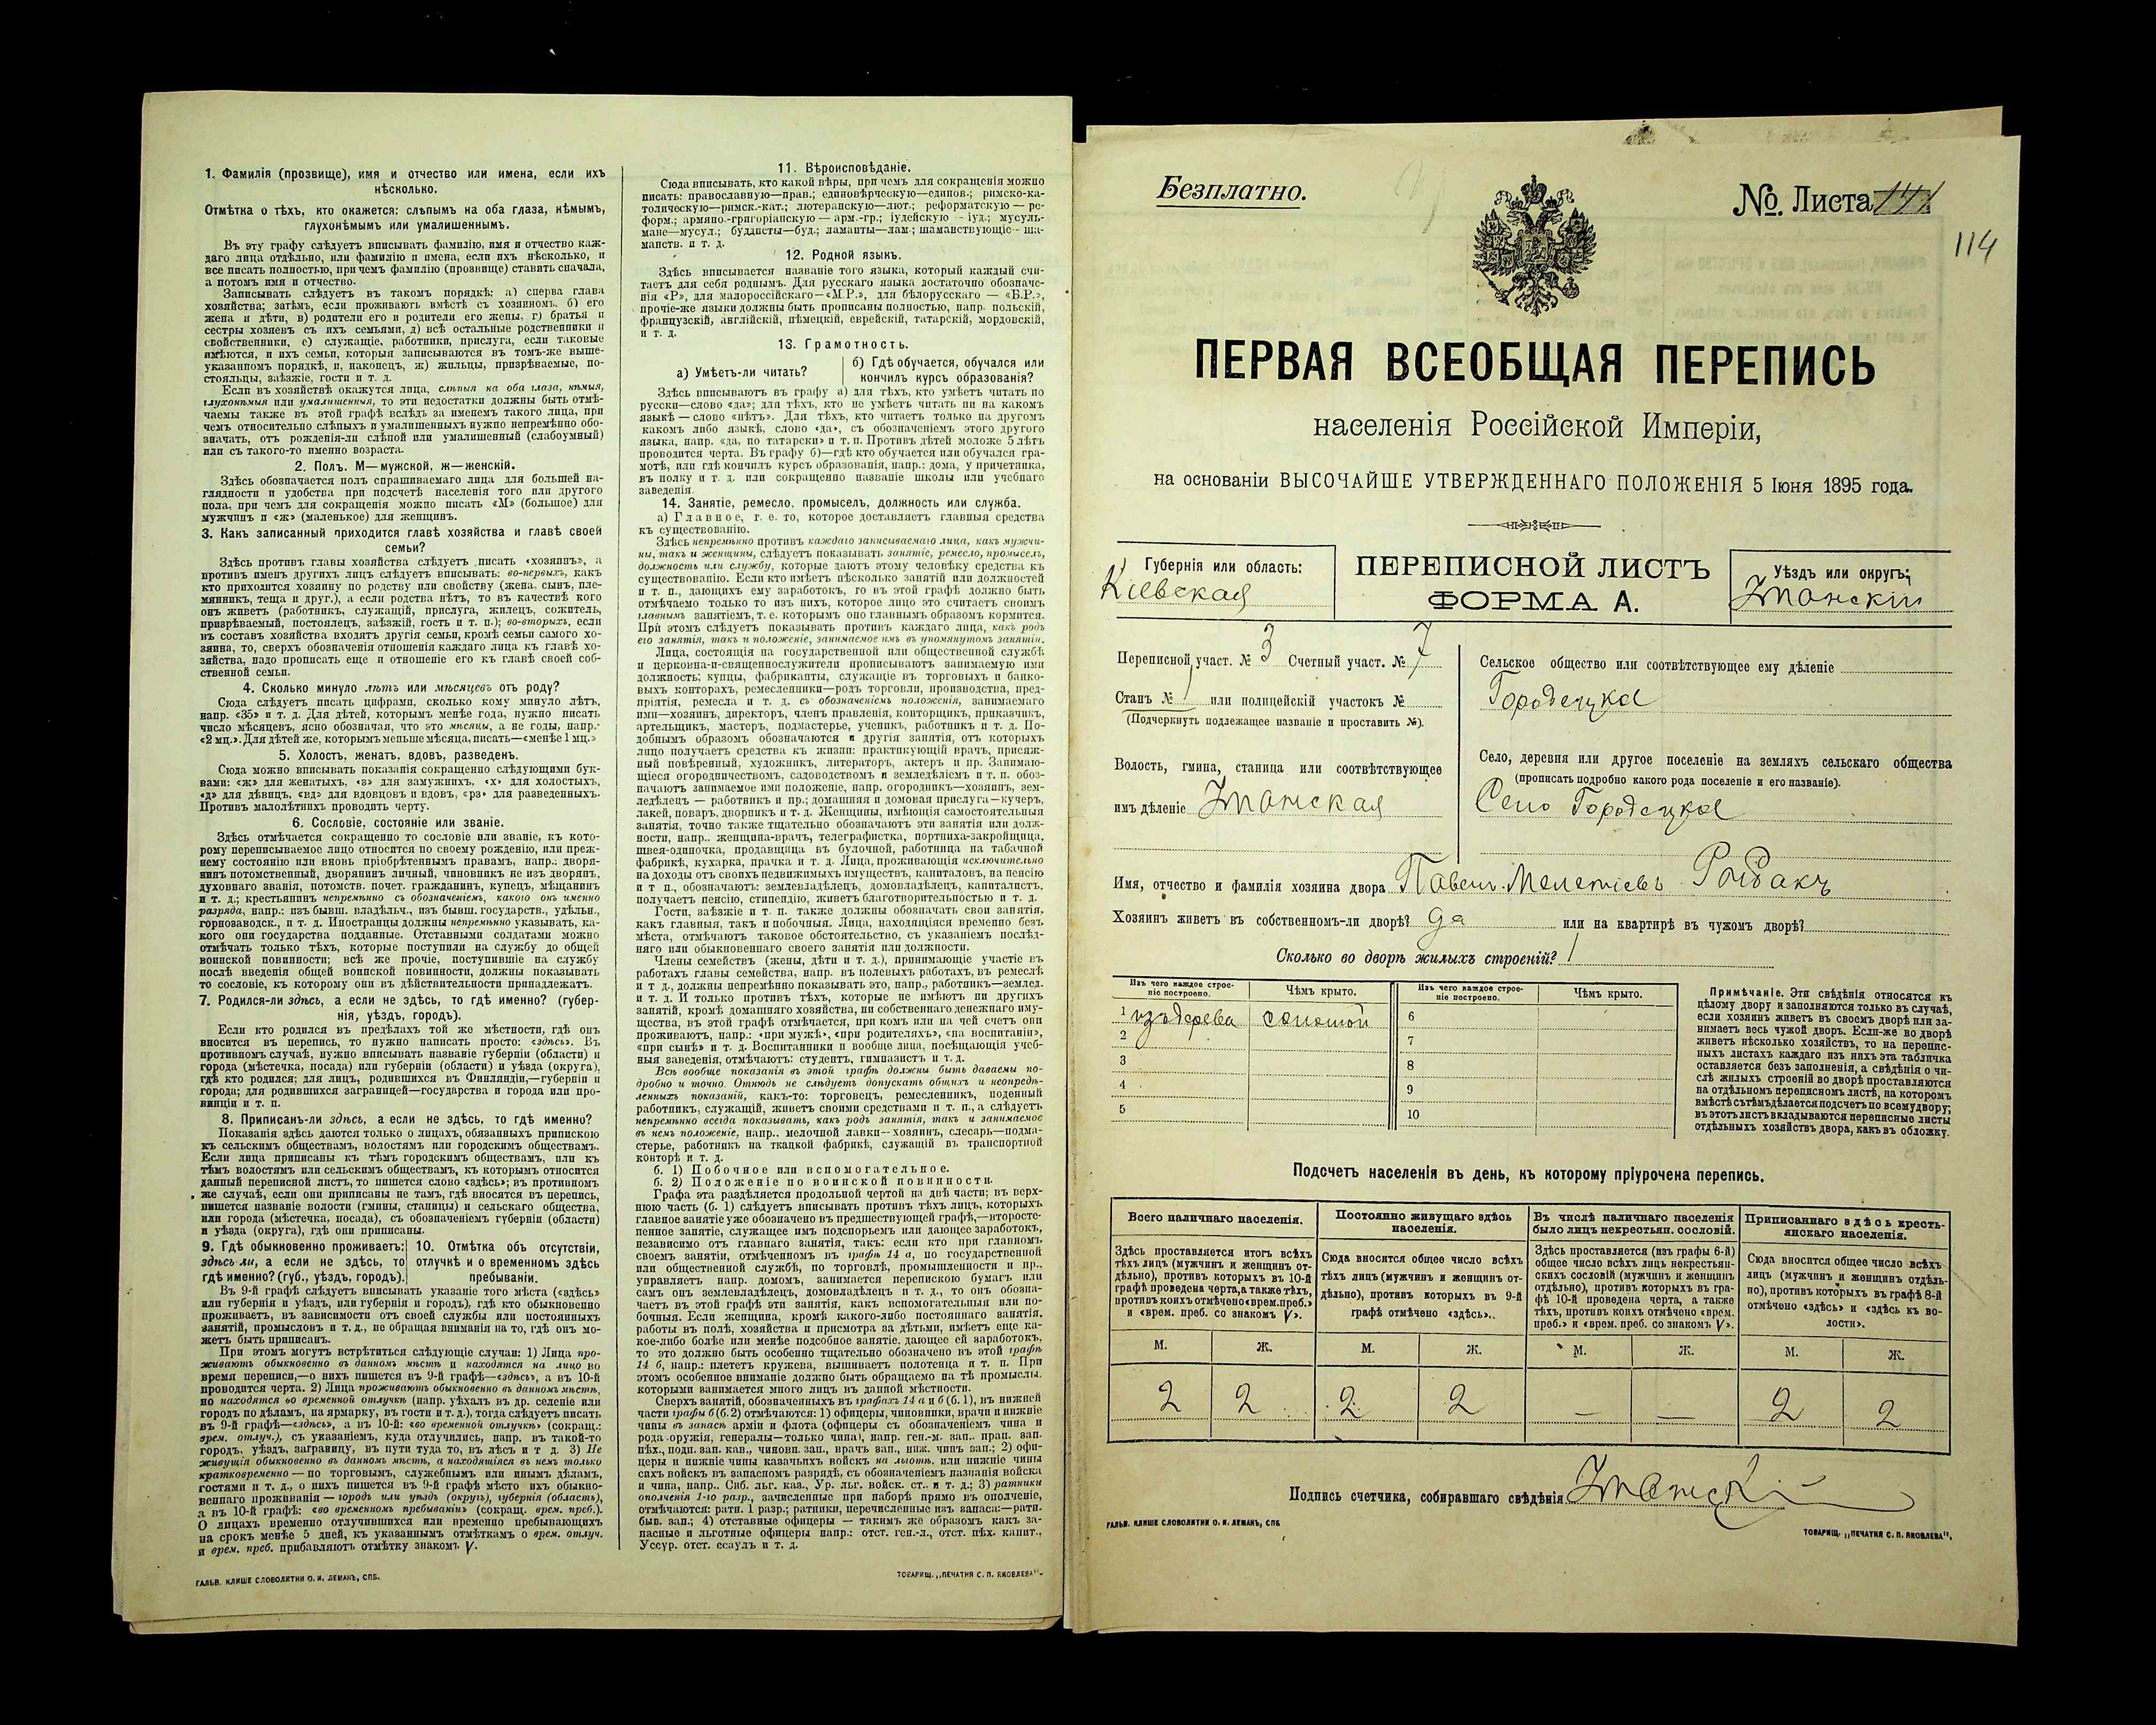 1. Фамилія (прозвище), имя и отчество или имена, если ихъ
нѣсколько.
Отмѣтка о тѣхъ, кто окажется: слѣпымъ на оба глаза, нѣмымъ,
глухонѣмымъ или умалишеннымъ.
Въ эту графу слѣдуетъ вписывать фамилію, имя и отчество каж-
даго лица отдѣльно, или фамилію и имена, если ихъ нѣсколько, и
все писать полностью, при чемъ фамилію (прозвище) ставить сначала,
а потомъ имя и отчество.
Записывать слѣдуетъ въ такомъ порядкѣ: а) сперва глава
хозяйства; затѣмъ, если проживаютъ вмѣстѣ съ хозяиномъ. б) его
жена и дѣти, в) родители его и родители его жены, г) братья и
сестры хозяевъ съ ихъ семьями, д) всѣ остальные родственники и
свойственники, е) служащіе, работники, прислуга, если таковые
имѣются, и ихъ семьи, которыя записываются въ томъ-же выше-
указанномъ порядкѣ, и, наконецъ, ж) жильцы, призрѣваемые, по-
стояльцы, заѣзжіе, гости и т. д.
Если въ хозяйствѣ окажутся лица, слѣпыя на оба глаза, нѣмыя,
глухонѣмыя или умалишенныя, то эти недостатки должны быть отмѣ-
чаемы также въ этой графѣ вслѣдъ за именемъ такого лица, при
чемъ относительно слѣпыхъ и умалишенныхъ нужно непремѣнно обо-
значать, отъ рожденія-ли слѣпой или умалишенный (слабоумный)
или съ такого-то именно возраста.
2. Полъ. М—мужской, ж—женскій.
Здѣсь обозначается полъ спрашиваемаго лица для большей на-
глядности и удобства при подсчетѣ населенія того или другого
пола, при чемъ для сокращенія можно писать «М» (большое) для
мужчинъ и «ж» (маленькое) для женщинъ.
3. Какъ записанный приходится главѣ хозяйства и главѣ своей
семьи?
Здѣсь противъ главы хозяйства слѣдуетъ писать «хозяинъ», а
противъ именъ другихъ лицъ слѣдуетъ вписывать: во-первыхъ, какъ
кто приходится хозяину по родству или свойству (жена, сынъ, пле-
мянникъ, теща и друг.), а если родства нѣтъ, то въ качествѣ кого
онъ живетъ (работникъ, служащій, прислуга, жилецъ, сожитель,
призрѣваемый, постоялецъ, заѣзжій, гость и т. п.); во-вторыхъ, если
въ составъ хозяйства входятъ другія семьи, кромѣ семьи самого хо-
зяина, то, сверхъ обозначенія отношенія каждаго лица къ главѣ хо-
зяйства, надо прописать еще и отношеніе его къ главѣ своей соб-
ственной семьи.
4. Сколько минуло лѣтъ или мѣсяцевъ отъ роду?
Сюда слѣдуетъ писать цифрами, сколько кому минуло лѣтъ,
напр. «35» и т. д. Для дѣтей, которымъ менѣе года, нужно писать
число мѣсяцевъ, ясно обозначая, что это мѣсяцы, а не годы, напр.
«2 мц.». Для дѣтей же, которымъ меньше мѣсяца, писать—«менѣе 1 мц.»
5. Холостъ, женатъ, вдовъ, разведенъ.
Сюда можно вписывать показанія сокращенно слѣдующими бук-
вами: «ж» для женатыхъ, «з» для замужнихъ, «х» для холостыхъ,
«д» для дѣвицъ, «вд» для вдовцовъ и вдовъ, «рз» для разведенныхъ.
Противъ малолѣтнихъ проводить черту.
6. Сословіе, состояніе или званіе.
Здѣсь отмѣчается сокращенно то сословіе или званіе, къ кото-
рому переписываемое лицо относится по своему рожденію, или преж-
нему состоянію или вновь пріобрѣтеннымъ правамъ, напр.: дворя-
нинъ потомственный, дворянинъ личный, чиновникъ не изъ дворянъ,
духовнаго званія, потомств. почет. гражданинъ, купецъ, мѣщанинъ
и т. д.; крестьянинъ непремѣнно съ обозначеніемъ, какого онъ именно
разряда, напр.: изъ бывш. владѣльч., изъ бывш. государств., удѣльн.,
горнозаводск., и т. д. Иностранцы должны непремѣнно указывать, ка-
кого они государства подданные. Отставными солдатами можно
отмѣчать только тѣхъ, которые поступили на службу до общей
воинской повинности; всѣ же прочіе, поступившіе на службу
послѣ введенія общей воинской повинности, должны показывать
то сословіе, къ которому они въ дѣйствительности принадлежатъ.
7. Родился-ли здѣсь, а если не здѣсь, то гдѣ именно? (губер-
нія, уѣздъ, городъ).
Если кто родился въ предѣлахъ той же мѣстности, гдѣ онъ
вносится въ перепись, то нужно написать просто: «здѣсь». Въ
противномъ случаѣ, нужно вписывать названіе губерніи (области) и
города (мѣстечка, посада) или губерніи (области) и уѣзда (округа),
гдѣ кто родился; для лицъ, родившихся въ Финляндіи,—губерніи и
города; для родившихся заграницей—государства и города или про-
винціи и т. п.
8. Приписанъ-ли здѣсь, а если не здѣсь, то гдѣ именно?
Показанія здѣсь даются только о лицахъ, обязанныхъ припискою
къ сельскимъ обществамъ, волостямъ или городскимъ обществамъ.
Если лица приписаны къ тѣмъ городскимъ обществамъ, или къ
тѣмъ волостямъ или сельскимъ обществамъ, къ которымъ относится
данный переписной листъ, то пишется слово «здѣсь»; въ противномъ
же случаѣ, если они приписаны не тамъ, гдѣ вносятся въ перепись,
пишется названіе волости (гмины, станицы) и сельскаго общества,
или города (мѣстечка, посада), съ обозначеніемъ губерніи (области)
и уѣзда (округа), гдѣ они приписаны.
9. Гдѣ обыкновенно проживаетъ:
здѣсь ли, а если не здѣсь, то
гдѣ именно? (губ., уѣздъ, городъ).
10. Отмѣтка объ отсутствіи,
отлучкѣ и о временномъ здѣсь
пребываніи.
Въ 9-й графѣ слѣдуетъ вписывать указаніе того мѣста («здѣсь»
или губернія и уѣздъ, или губернія и городъ), гдѣ кто обыкновенно
проживаетъ, въ зависимости отъ своей службы или постоянныхъ
занятій, промысловъ и т. д., не обращая вниманія на то, гдѣ онъ мо-
жетъ быть приписанъ.
При этомъ могутъ встрѣтиться слѣдующіе случаи: 1) Лица про-
живаютъ обыкновенно въ данномъ мѣстѣ и находятся на лицо во
время переписи,—о нихъ пишется въ 9-й графѣ—«здѣсь», а въ 10-й
проводится черта. 2) Лица проживаютъ обыкновенно въ данномъ мѣстѣ,
но находятся во временной отлучкѣ (напр. уѣхалъ въ др. селеніе или
городъ по дѣламъ, на ярмарку, въ гости и т. д.), тогда слѣдуетъ писать
въ 9-й графѣ—«здѣсь», а въ 10-й: «во временной отлучкѣ» (сокращ.:
врем. отлуч.), съ указаніемъ, куда отлучились, напр. въ такой-то
городъ, уѣздъ, заграницу, въ пути туда то, въ лѣсъ и т д. 3) Не
живущія обыкновенно въ данномъ мѣстѣ, а находящіяся въ немъ только
кратковременно — по торговымъ, служебнымъ или инымъ дѣламъ,
гостями и т. д., о нихъ пишется въ 9-й графѣ мѣсто ихъ обыкно-
веннаго проживанія — городъ или уѣздъ (округъ), губернія (область),
а въ 10-й графѣ: «во временномъ пребываніи» (сокращ. врем. преб.).
О лицахъ временно отлучившихся или временно пребывающихъ
на срокъ менѣе 5 дней, къ указаннымъ отмѣткамъ о врем. отлуч.
и врем. преб. прибавляютъ отмѣтку знакомъ V.
ГАЛЬВ. КЛИШЕ СЛОВОЛИТНИ О. И. ЛЕМАНЪ, СПБ.
11. Вѣроисповѣданіе.
Сюда вписывать, кто какой вѣры, при чемъ для сокращенія можно
писать: православную—прав.; единовѣрческую—единов.; римско-ка-
толическую—римск.-кат.; лютеранскую—лют.; реформатскую — ре-
форм.; армяно-григоріанскую — арм.-гр.; іудейскую — іуд.; мусуль-
мане—мусул.; буддисты—буд.; ламаиты—лам.; шаманствующіе — ша-
манств. и т. д.
12. Родной языкъ.
Здѣсь вписывается названіе того языка, который каждый счи-
таетъ для себя роднымъ. Для русскаго языка достаточно обозначе-
нія «Р», для малороссійскаго—«М.Р.», для бѣлорусскаго — «Б.Р.»,
прочіе-же языки должны быть прописаны полностью, напр. польскій,
французскій, англійскій, нѣмецкій, еврейскій, татарскій, мордовскій,
и т. д.
13. Грамотность.
а) Умѣетъ-ли читать?
б) Гдѣ обучается, обучался или
кончилъ курсъ образованія?
Здѣсь вписываютъ въ графу а) для тѣхъ, кто умѣетъ читать по
русски—слово «да»; для тѣхъ, кто не умѣетъ читать ни на какомъ
языкѣ — слово «нѣтъ». Для тѣхъ, кто читаетъ только на другомъ
какомъ либо языкѣ, слово «да», съ обозначеніемъ этого другого
языка, напр. «да, по татарски» и т. п. Противъ дѣтей моложе 5 лѣтъ
проводится черта. Въ графу б)—гдѣ кто обучается или обучался гра-
мотѣ, или гдѣ кончилъ курсъ образованія, напр.: дома, у причетника,
въ полку и т. д. или сокращенно названіе школы или учебнаго
заведенія.
14. Занятіе, ремесло, промыселъ, должность или служба.
а) Главное, т. е. то, которое доставляетъ главныя средства
къ существованію.
Здѣсь непремѣнно противъ каждаго записываемаго лица, какъ мужчи-
ны, такъ и женщины, слѣдуетъ показывать занятіе, ремесло, промыселъ,
должность или службу, которые даютъ этому человѣку средства къ
существованію. Если кто имѣетъ нѣсколько занятій или должностей
и т. п., дающихъ ему заработокъ, то въ этой графѣ должно быть
отмѣчаемо только то изъ нихъ, которое лицо это считаетъ своимъ
главнымъ занятіемъ, т. е. которымъ оно главнымъ образомъ кормится.
При этомъ слѣдуетъ показывать противъ каждаго лица, какъ родъ
его занятія, такъ и положеніе, занимаемое имъ въ упомянутомъ занятіи.
Лица, состоящія на государственной или общественной службѣ
и церковно-и-священнослужители прописываютъ занимаемую ими
должность; купцы, фабриканты, служащіе въ торговыхъ и банко-
выхъ конторахъ, ремесленники—родъ торговли, производства, пред-
пріятія, ремесла и т. д. съ обозначеніемъ положенія, занимаемаго
ими—хозяинъ, директоръ, членъ правленія, конторщикъ, приказчикъ,
артельщикъ, мастеръ, подмастерье, ученикъ, работникъ и т. д. По-
добнымъ образомъ обозначаются и другія занятія, отъ которыхъ
лицо получаетъ средства къ жизни: практикующій врачъ, присяж-
ный повѣренный, художникъ, литераторъ, актеръ и пр. Занимаю-
щіеся огородничествомъ, садоводствомъ и земледѣліемъ и т. п. обоз-
начаютъ занимаемое ими положеніе, напр. огородникъ—хозяинъ, зем-
ледѣлецъ — работникъ и пр.; домашняя и домовая прислуга—кучеръ,
лакей, поваръ, дворникъ и т. д. Женщины, имѣющія самостоятельныя
занятія, точно также тщательно обозначаютъ эти занятія или долж-
ности, напр.. женщина-врачъ, телеграфистка, портниха-закройщица,
швея-одиночка, продавщица въ булочной, работница на табачной
фабрикѣ, кухарка, прачка и т. д. Лица, проживающія исключительно
на доходы отъ своихъ недвижимыхъ имуществъ, капиталовъ, на пенсію
и т п., обозначаютъ: землевладѣлецъ, домовладѣлецъ, капиталистъ,
получаетъ пенсію, стипендію, живетъ благотворительностью и т. д.
Гости, заѣзжіе и т. п. также должны обозначать свои занятія,
какъ главныя, такъ и побочныя. Лица, находящіяся временно безъ
мѣста, отмѣчаютъ таковое обстоятельство, съ указаніемъ послѣд-
няго или обыкновеннаго своего занятія или должности.
Члены семействъ (жены, дѣти и т. д.), принимающіе участіе въ
работахъ главы семейства, напр. въ полевыхъ работахъ, въ ремеслѣ
и т д., должны непремѣнно показывать это, напр., работникъ—землед.
и т. д. И только противъ тѣхъ, которые не имѣютъ ни другихъ
занятій, кромѣ домашняго хозяйства, ни собственнаго денежнаго иму-
щества, въ этой графѣ отмѣчается, при комъ или на чей счетъ они
проживаютъ, напр.: «при мужѣ», «при родителяхъ», «на воспитаніи»,
«при сынѣ» и т. д. Воспитанники и вообще лица, посѣщающія учеб-
ныя заведенія, отмѣчаютъ: студентъ, гимназистъ и т. д.
Всѣ вообще показанія въ этой графѣ должны быть даваемы по-
дробно и точно. Отнюдь не слѣдуетъ допускать общихъ и неопредѣ-
ленныхъ показаній, какъ-то: торговецъ, ремесленникъ, поденный
работникъ, служащій, живетъ своими средствами и т. п., а слѣдуетъ
непремѣнно всегда показывать, какъ родъ занятія, такъ и занимаемое
въ немъ положеніе, напр.. мелочной лавки—хозяинъ, слесарь—подма-
стерье, работникъ на ткацкой фабрикѣ, служащій въ транспортной
конторѣ и т. д.
б. 1) Побочное или вспомогательное.
б. 2) Положеніе по воинской повинности.
Графа эта раздѣляется продольной чертой на двѣ части; въ верх-
нюю часть (б. 1) слѣдуетъ вписывать противъ тѣхъ лицъ, которыхъ
главное занятіе уже обозначено въ предшествующей графѣ,—второсте-
пенное занятіе, служащее имъ подспорьемъ или дающее заработокъ,
независимо отъ главнаго занятія, такъ: если кто при главномъ
своемъ занятіи, отмѣченномъ въ графѣ 14 а, по государственной
или общественной службѣ, по торговлѣ, промышленности и пр.,
управляетъ напр. домомъ, занимается перепискою бумагъ или
самъ онъ землевладѣлецъ, домовладѣлецъ и т. д., то онъ обозна-
чаетъ въ этой графѣ эти занятія, какъ вспомогательныя или по-
бочныя. Если женщина, кромѣ какого-либо постояннаго занятія,
работы въ полѣ, хозяйства и присмотра за дѣтьми, имѣетъ еще ка-
кое-либо болѣе или менѣе подсобное занятіе, дающее ей заработокъ,
то это должно быть особенно тщательно обозначено въ этой графѣ
14 б, напр.: плететъ кружева, вышиваетъ полотенца и т. п. При
этомъ особенное вниманіе должно быть обращаемо на тѣ промыслы,
которыми занимается много лицъ въ данной мѣстности.
Сверхъ занятій, обозначенныхъ въ графахъ 14 а и б (б. 1), въ нижней
части графы б (б. 2) отмѣчаются: 1) офицеры, чиновники, врачи и нижніе
чины въ запасѣ арміи и флота (офицеры съ обозначеніемъ чина и
рода оружія, генералы—только чина), напр. ген-м. зап.. прап. зап.
пѣх., подп. зап. кав., чиновн. зап., врачъ зап., ниж. чинъ зап.; 2) офи-
церы и нижніе чины казачьихъ войскъ на льготѣ, или нижніе чины
сихъ войскъ въ запасномъ разрядѣ, съ обозначеніемъ названія войска
и чина, напр.. Сиб. льг. каз., Ур. льг. войск. ст. и т. д.; 3) ратники
ополченія 1-го разр., зачисленные при наборѣ прямо въ ополченіе,
отмѣчаются: ратн. 1 разр.; ратники, перечисленные изъ запаса:—ратн.
быв. зап.; 4) отставные офицеры — такимъ же образомъ какъ за-
пасные и льготные офицеры напр.: отст. ген.-л., отст. пѣх. капит.,
Уссур. отст. есаулъ и т. д.
ТОВАРИЩ. „ПЕЧАТНЯ С. П. ЯКОВЛЕВА“.
Безплатно.
№. Листа 141
114
ПЕРВАЯ ВСЕОБЩАЯ ПЕРЕПИСЬ
населенія Россійской Имперіи,
на основаніи ВЫСОЧАЙШЕ УТВЕРЖДЕННАГО ПОЛОЖЕНІЯ 5 Іюня 1895 года.
Губернія или область:
Кіевская
ПЕРЕПИСНОЙ ЛИСТЪ
ФОРМА А.
Уѣздъ или округъ:
Уманскій
Переписной участ. № 3 Счетный участ. № 7
Станъ № 1 или полицейскій участокъ №
(Подчеркнуть подлежащее названіе и проставить №).
Волость, гмина, станица или соотвѣтствующее
имъ дѣленіе Уманская
Сельское общество или соотвѣтствующее ему дѣленіе
Городецкое
Село, деревня или другое поселеніе на земляхъ сельскаго общества
(прописать подробно какого рода поселеніе и его названіе).
Село Городецкое
Имя, отчество и фамилія хозяина двора Павелъ Мелетіевъ Рыбакъ
Хозяинъ живетъ въ собственномъ-ли дворѣ? да или на квартирѣ въ чужомъ дворѣ?
Сколько во дворѣ жилыхъ строеній? 1
Изъ чего каждое строе-
ніе построено.
Чѣмъ крыто.
Изъ чего каждое строе-
ніе построено.
Чѣмъ крыто.
1 изъ дерева соломой 6
2 7
3 8
4 9
5 10
Примѣчаніе. Эти свѣдѣнія относятся къ
цѣлому двору и заполняются только въ случаѣ,
если хозяинъ живетъ въ своемъ дворѣ или за-
нимаетъ весь чужой дворъ. Если-же во дворѣ
живетъ нѣсколько хозяйствъ, то на перепис-
ныхъ листахъ каждаго изъ нихъ эта табличка
оставляется безъ заполненія, а свѣдѣнія о чи-
слѣ жилыхъ строеній во дворѣ проставляются
на отдѣльномъ переписномъ листѣ, на которомъ
вмѣстѣ съ тѣмъ дѣлается подсчетъ по всему двору;
въ этотъ листъ вкладываются переписные листы
отдѣльныхъ хозяйствъ двора, какъ въ обложку.
Подсчетъ населенія въ день, къ которому пріурочена перепись.
Всего наличнаго населенія.
Здѣсь проставляется итогъ всѣхъ
тѣхъ лицъ (мужчинъ и женщинъ от-
дѣльно), противъ которыхъ въ 10-й
графѣ проведена черта, а также тѣхъ,
противъ коихъ отмѣчено «врем. преб.»
и «врем. преб. со знакомъ V».
Постоянно живущаго здѣсь
населенія.
Сюда вносится общее число всѣхъ
тѣхъ лицъ (мужчинъ и женщинъ от-
дѣльно), противъ которыхъ въ 9-й
графѣ отмѣчено «здѣсь».
Въ числѣ наличнаго населенія
было лицъ некрестьян. сословій.
Здѣсь проставляется (изъ графы 6-й)
общее число всѣхъ лицъ некрестьян-
скихъ сословій (мужчинъ и женщинъ
отдѣльно), противъ которыхъ въ гра-
фѣ 10-й проведена черта, а также
тѣхъ, противъ коихъ отмѣчено «врем.
преб.» и «врем. преб. со знакомъ V».
Приписаннаго здѣсь кресть-
янскаго населенія.
Сюда вносится общее число всѣхъ
лицъ (мужчинъ и женщинъ отдѣль-
но), противъ которыхъ въ графѣ 8-й
отмѣчено «здѣсь» и «здѣсь къ во-
лости».
М. Ж. М. Ж. М. Ж. М. Ж.
2 2 2 2 — — 2 2
Подпись счетчика, собиравшаго свѣдѣнія
ГАЛЬВ. КЛИШЕ СЛОВОЛИТНИ О. И. ЛЕМАНЪ, СПБ
ТОВАРИЩ. „ПЕЧАТНЯ С. П. ЯКОВЛЕВА“.